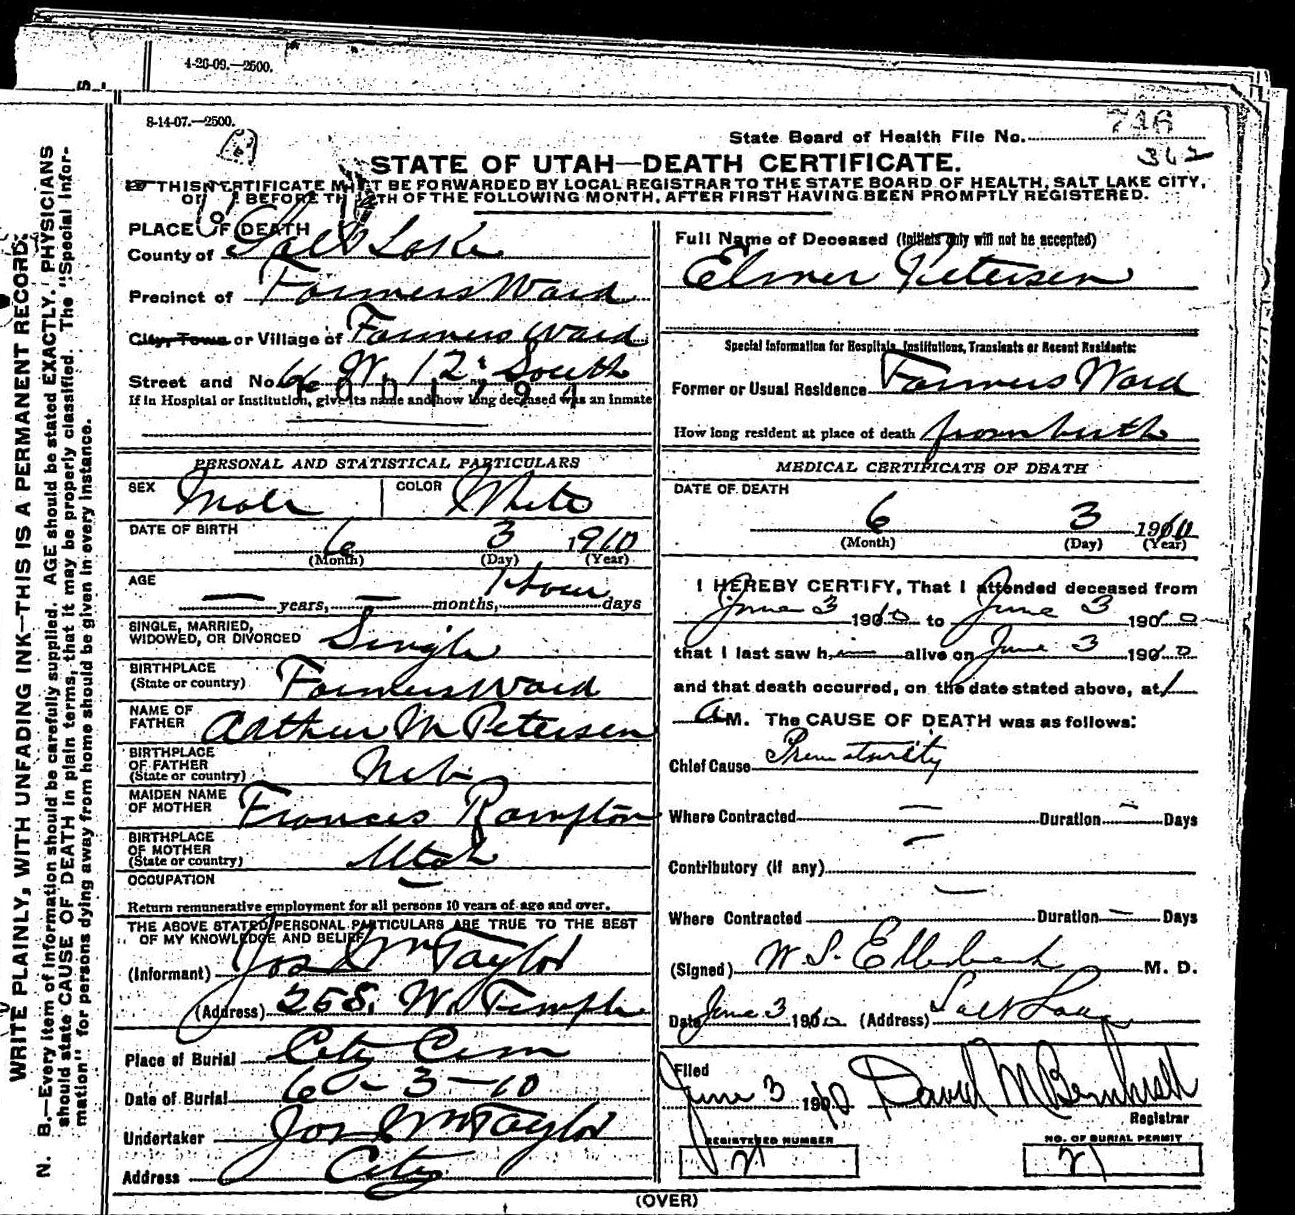 4-26-09.—2500.
8-14-07.—2500.
State Board of Health File No. 746
362
STATE OF UTAH—DEATH CERTIFICATE.
THIS CERTIFICATE MUST BE FORWARDED BY LOCAL REGISTRAR TO THE STATE BOARD OF HEALTH, SALT LAKE CITY,
BEFORE TH TH OF THE FOLLOWING MONTH, AFTER FIRST HAVING BEEN PROMPTLY REGISTERED.
PLACE OF DEATH
County of Salt Lake
Precinct of Farmers Ward
City, Town or Village of Farmers Ward
Street and No. 66 W. 12 South
If in Hospital or Institution, give its name and how long deceased was an inmate
Full Name of Deceased (Initials only will not be accepted)
Elmer Petersen
Special Information for Hospitals, Institutions, Transients or Recent Residents:
Former or Usual Residence Farmers Ward
How long resident at place of death from birth
PERSONAL AND STATISTICAL PARTICULARS
SEX Male COLOR White
DATE OF BIRTH 6 3 1910
(Month) (Day) (Year)
AGE — years, — months, 1 Hour days
SINGLE, MARRIED,
WIDOWED, OR DIVORCED Single
BIRTHPLACE
(State or country) Farmers Ward
NAME OF
FATHER Arthur M Petersen
BIRTHPLACE
OF FATHER
(State or country) Neb
MAIDEN NAME
OF MOTHER Frances Rampton
BIRTHPLACE
OF MOTHER
(State or country) Utah
OCCUPATION —
Return remunerative employment for all persons 10 years of age and over.
THE ABOVE STATED PERSONAL PARTICULARS ARE TRUE TO THE BEST
OF MY KNOWLEDGE AND BELIEF
(Informant) Jos Wm Taylor
(Address) 25 S. W. Temple
Place of Burial City Cem
Date of Burial 6-3-10
Undertaker Jos Wm Taylor
Address City
MEDICAL CERTIFICATE OF DEATH
DATE OF DEATH
6 3 1910
(Month) (Day) (Year)
I HEREBY CERTIFY, That I attended deceased from
June 3 1910 to June 3 1910
that I last saw h im alive on June 3 1910
and that death occurred, on the date stated above, at 1
A M. The CAUSE OF DEATH was as follows:
Chief Cause Prematurity
Where Contracted — Duration — Days
Contributory (if any) —
Where Contracted — Duration — Days
(Signed) W. S. Ellerbeck M. D.
Date June 3 1910 (Address) Salt Lake
Filed
June 3 1910 David M
Registrar
REGISTERED NUMBER
21
NO. OF BURIAL PERMIT
21
(OVER)
WRITE PLAINLY, WITH UNFADING INK—THIS IS A PERMANENT RECORD.
N. B.—Every item of information should be carefully supplied. AGE should be stated EXACTLY. PHYSICIANS
should state CAUSE OF DEATH in plain terms, that it may be properly classified. The "Special Infor-
mation" for persons dying away from home should be given in every instance.